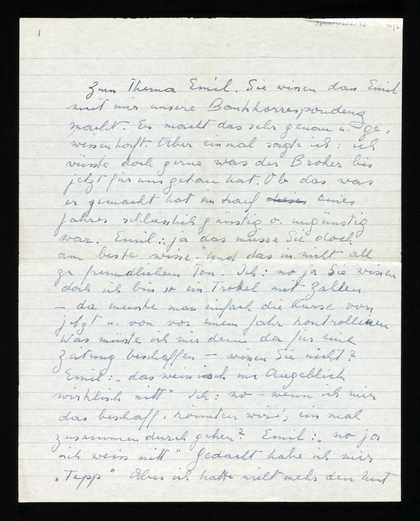 1
Zum Thema Emil. Sie wissen dass Emil
mit mir unsere Bankkorrespondenz
macht. Er macht das sehr genau u. ge-
wissenhaft. Aber einmal sagte ich: ich
wüsste doch gerne was der Broker bis
jetzt für uns getan hat. Ob das was
er gemacht hat im Lauf eines
Jahres schliesslich günstig o. ungünstig
war. Emil: „ja das müssen Sie doch
am beste wisse" und das in nicht all
zu freundlichem Ton. Ich: no ja Sie wissen
doch ich bin so ein Trottel mit Zahlen
– da müsste man einfach die Kurse von
jetzt u. von vor einem Jahr kontrollieren
Was müsste ich mir denn da für eine
Zeitung beschaffen – wissen Sie nicht?
Emil: „das weiss ich im Augeblick
wirklich nitt" Ich: no – wenn ich mir
das beschaff. könnten wir's einmal
zusammen durch gehen? Emil: „no ja
ich weiss nitt" Gedacht habe ich mir
„Depp" Aber ich hatte nicht mehr den Mut